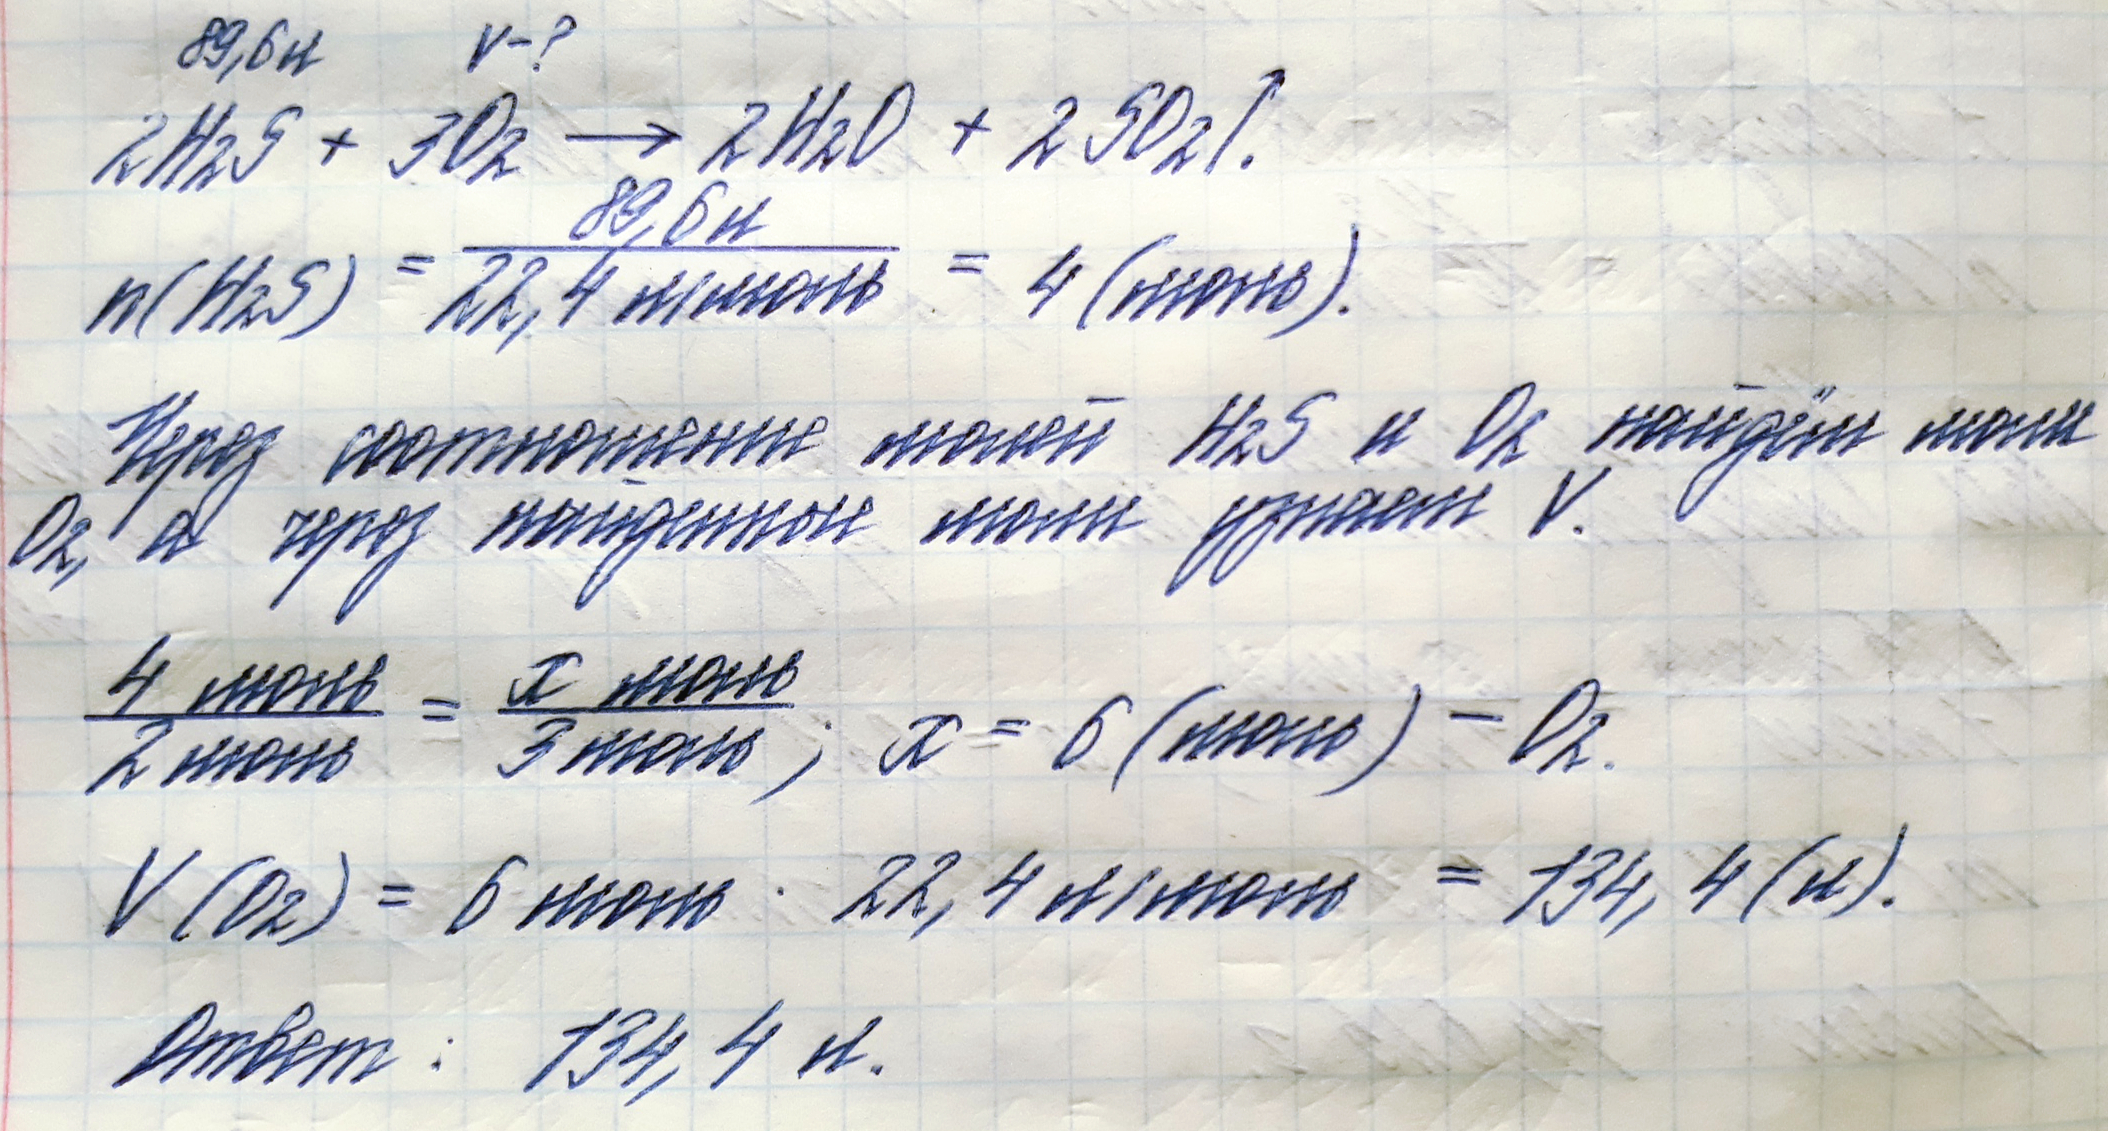 89,6 л V-?
2H₂S + 3O₂ → 2H₂O + 2SO₂↑.
n(H₂S) = 89,6 л / 22,4 л/моль = 4 (моль).
Через соотношение молей H₂S и O₂ найдём моли
O₂, а через найденные моли узнаем V.
4 моль / 2 моль = x моль / 3 моль; x = 6 (моль) – O₂.
V(O₂) = 6 моль · 22,4 л/моль = 134,4 (л).
Ответ: 134,4 л.